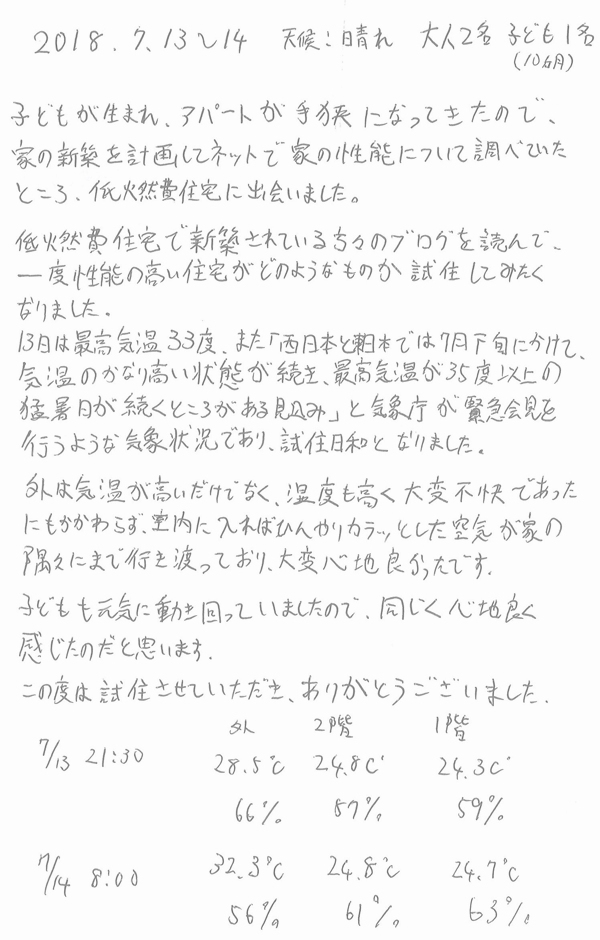 2018.7.13〜14 天候:晴れ 大人2名 子ども1名
(10ヵ月)
子どもが生まれ、アパートが手狭になってきたので、
家の新築を計画してネットで家の性能について調べていた
ところ、低火燃費住宅に出会いました。
低火燃費住宅で新築されている方々のブログを読んで、
一度性能の高い住宅がどのようなものか試住してみたく
なりました。
13日は最高気温33度、また「西日本と東日本では7月下旬にかけて、
気温のかなり高い状態が続き、最高気温が35度以上の
猛暑日が続くところがある見込み」と気象庁が緊急会見を
行うような気象状況であり、試住日和となりました。
外は気温が高いだけでなく、湿度も高く大変不快であった
にもかかわらず、室内に入ればひんやりカラッとした空気が家の
隅々にまで行き渡っており、大変心地良かったです.
子どもも元気に動き回っていましたので、同じく心地良く
感じたのだと思います.
この度は試住させていただき、ありがとうございました.
外 2階 1階
7/13 21:30 28.5℃ 24.8℃ 24.3℃
66% 57% 59%
7/14 8:00 32.3℃ 24.8℃ 24.7℃
56% 61% 63%